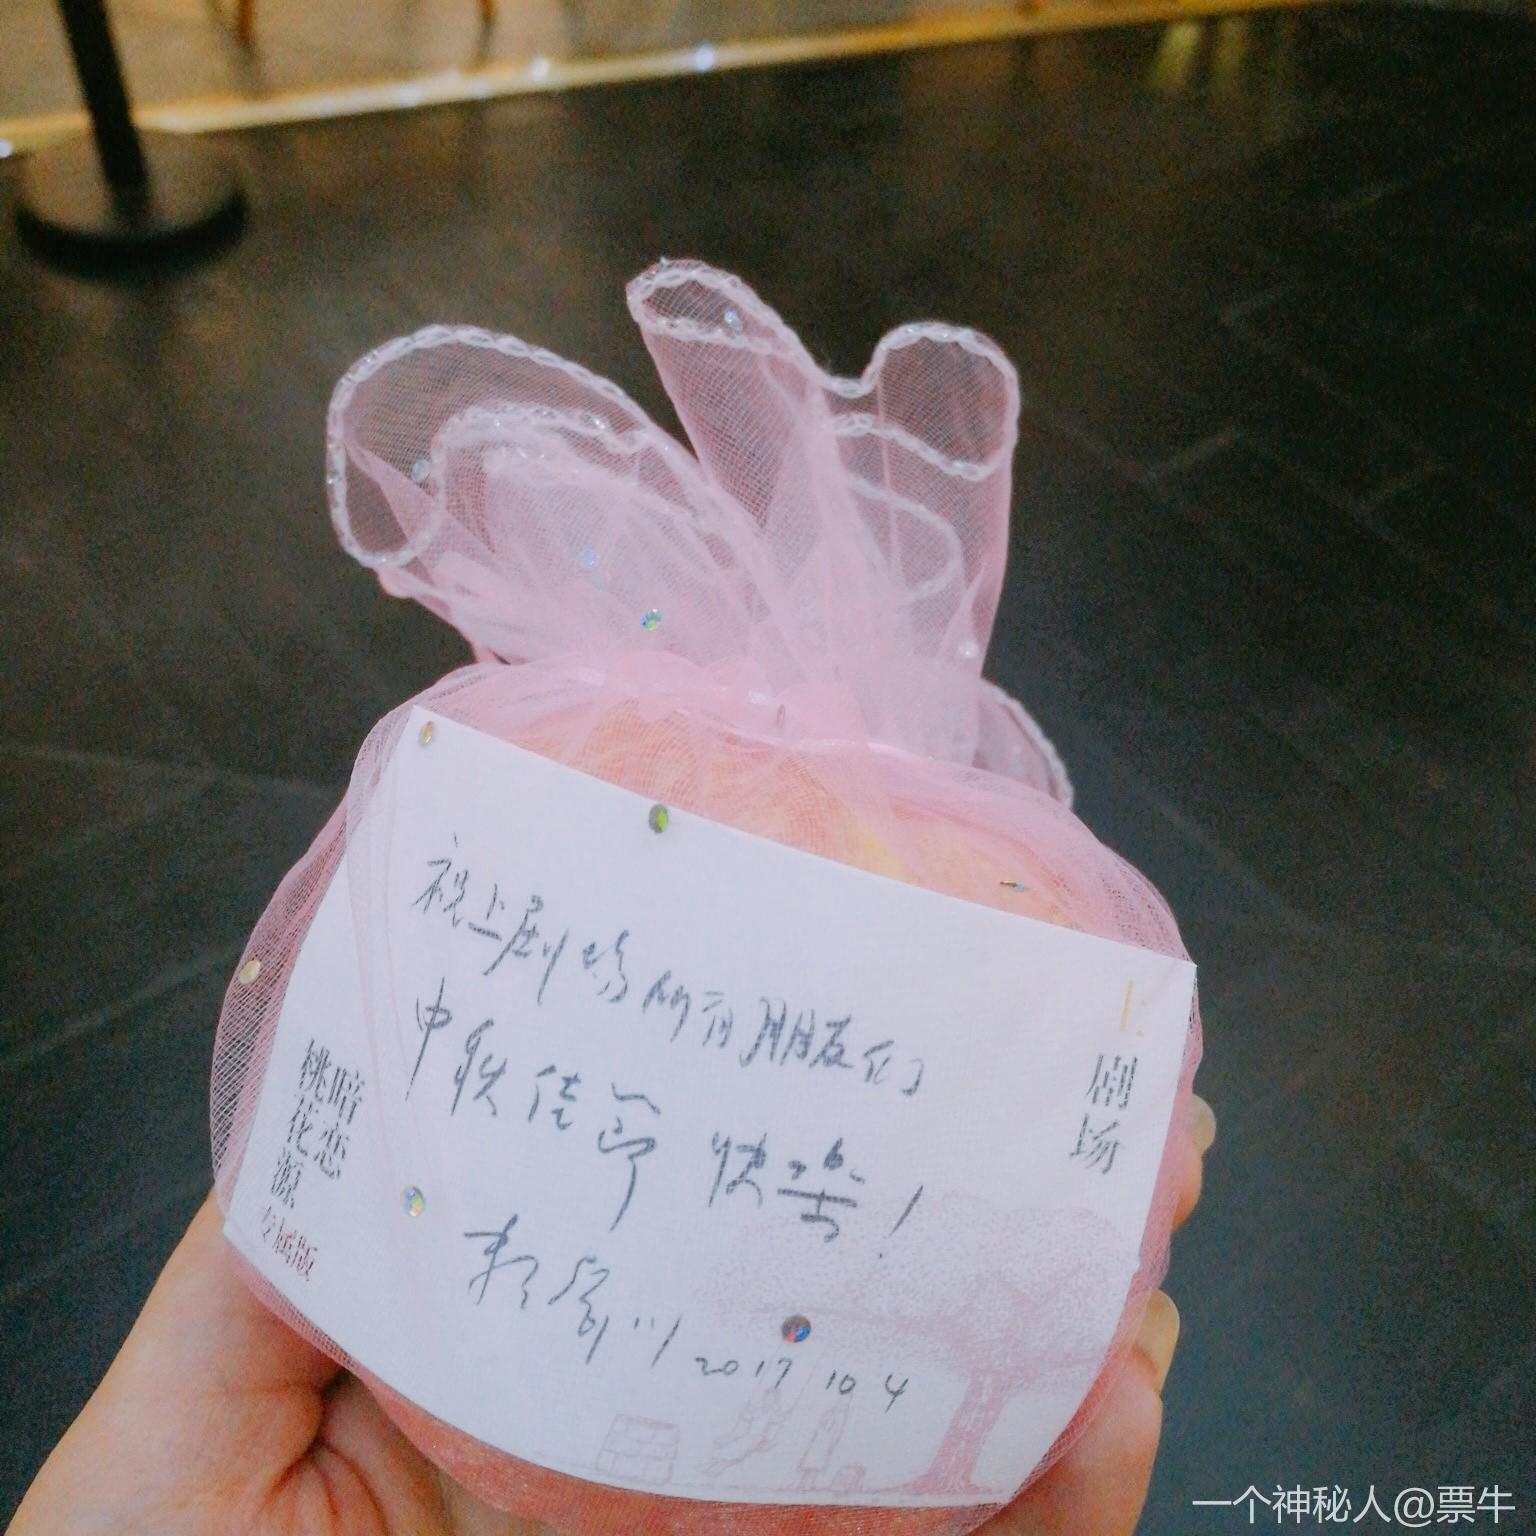 祝上剧场所有朋友们
中秋佳节 快樂！
赖声川 2017 10 4
上
剧场
暗恋
桃花源
专属版
一个神秘人@票牛